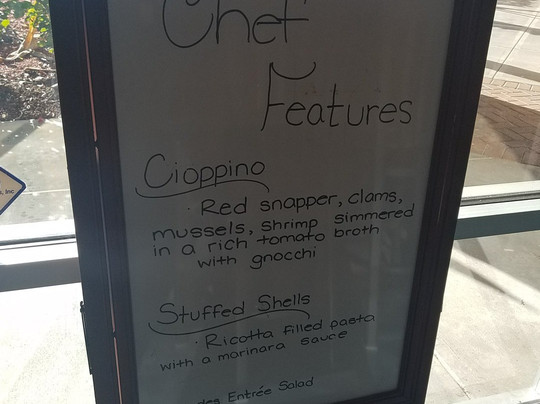 Chef
Features
Cioppino
· Red snapper, clams,
mussels, shrimp simmered
in a rich tomato broth
with gnocchi
Stuffed Shells
· Ricotta filled pasta
with a marinara sauce
Entrée Salad